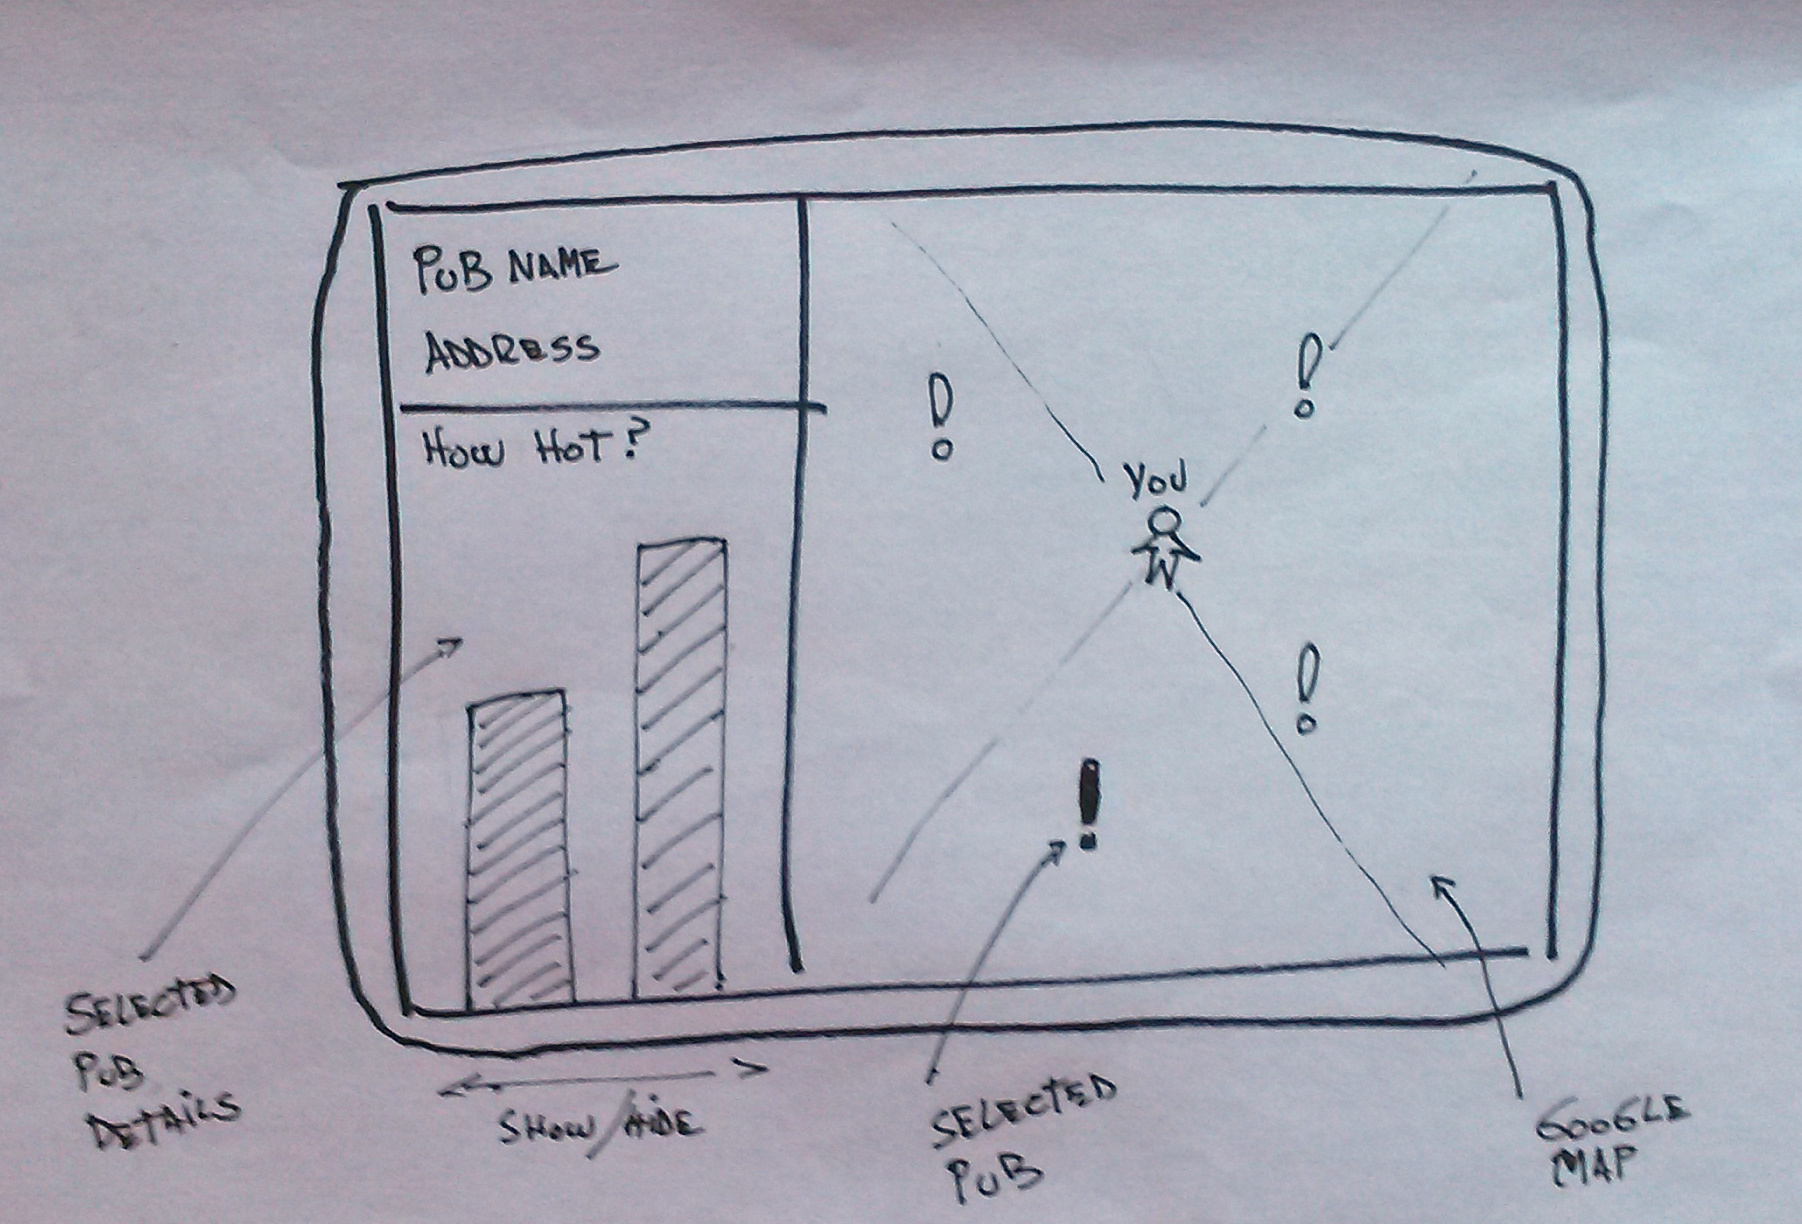 PUB NAME
ADDRESS
HOW HOT?
YOU
!
!
!
!
SELECTED
PUB
DETAILS
SHOW/HIDE
SELECTED
PUB
GOOGLE
MAP